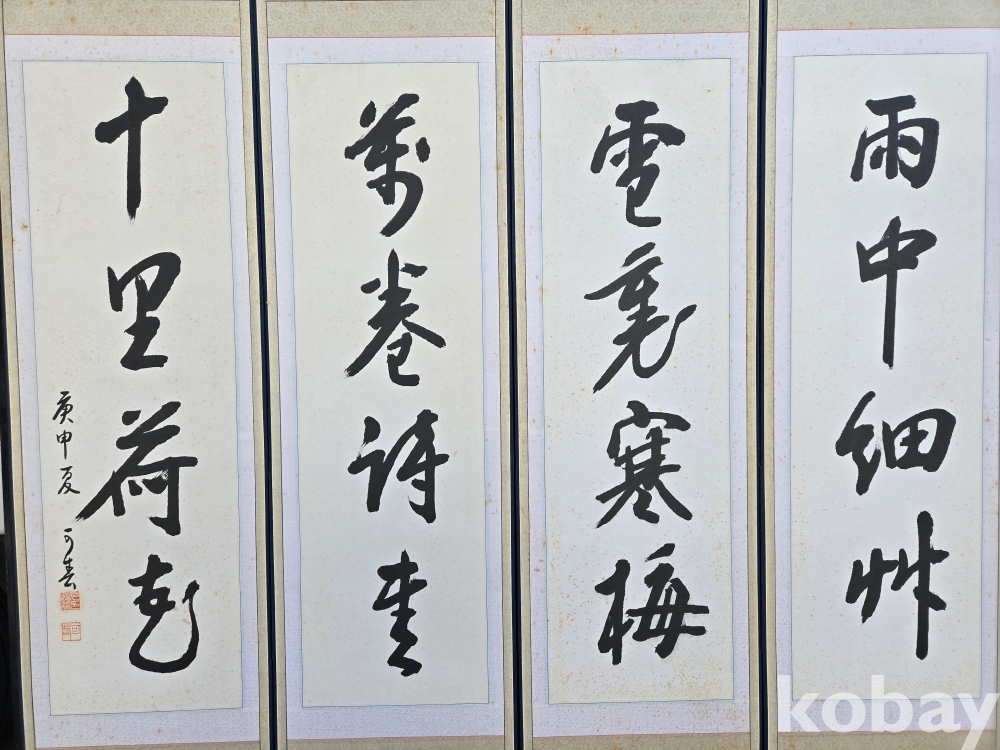 雨中細艸
雪裏寒梅
萬卷詩書
十里荷花
庚申夏 可春
kobay